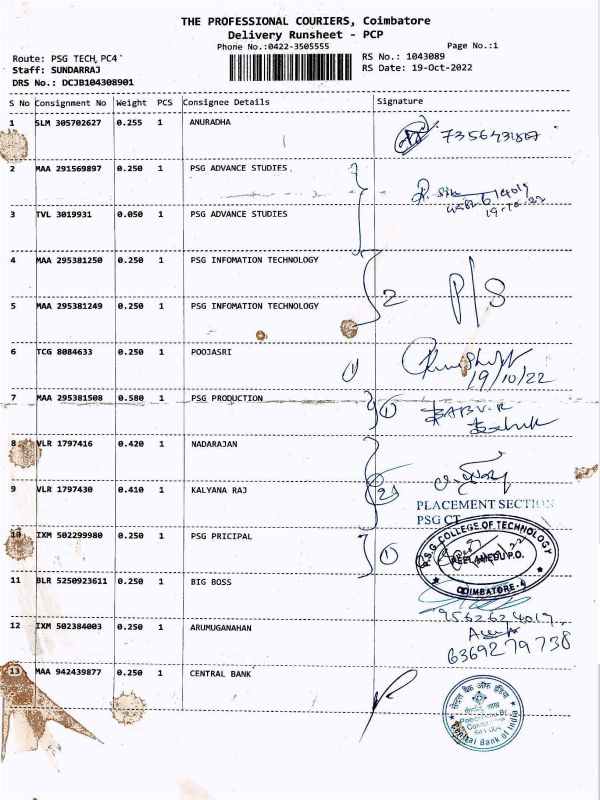 THE PROFESSIONAL COURIERS, Coimbatore
Delivery Runsheet - PCP
Phone No.:0422-3505555
Page No.:1
Route: PSG TECH, PC4
RS No.: 1043089
Staff: SUNDARRAJ
RS Date: 19-Oct-2022
DRS No.: DCJB104308901
S No Consignment No Weight PCS Consignee Details Signature
1 SLM 305702627 0.255 1 ANURADHA
2 MAA 291569897 0.250 1 PSG ADVANCE STUDIES
19.10.22
3 TVL 3019931 0.050 1 PSG ADVANCE STUDIES
4 MAA 295381250 0.250 1 PSG INFOMATION TECHNOLOGY
2 P/S
5 MAA 295381249 0.250 1 PSG INFOMATION TECHNOLOGY
6 TCG 8084633 0.250 1 POOJASRI
1
19/10/22
7 MAA 295381508 0.580 1 PSG PRODUCTION
1 BABU.R
8 VLR 1797416 0.420 1 NADARAJAN
9 VLR 1797430 0.410 1 KALYANA RAJ
2
PLACEMENT SECTION
PSG CT
10 IXM 502299980 0.250 1 PSG PRICIPAL
1
P.S.G. COLLEGE OF TECHNOLOGY
PEELAMEDU P.O.
COIMBATORE-4
11 BLR 5250923611 0.250 1 BIG BOSS
9562624019
12 IXM 502384003 0.250 1 ARUMUGANAHAN
6369279738
13 MAA 942439877 0.250 1 CENTRAL BANK
सेन्ट्रल बैंक ऑफ इंडिया
Central Bank of India